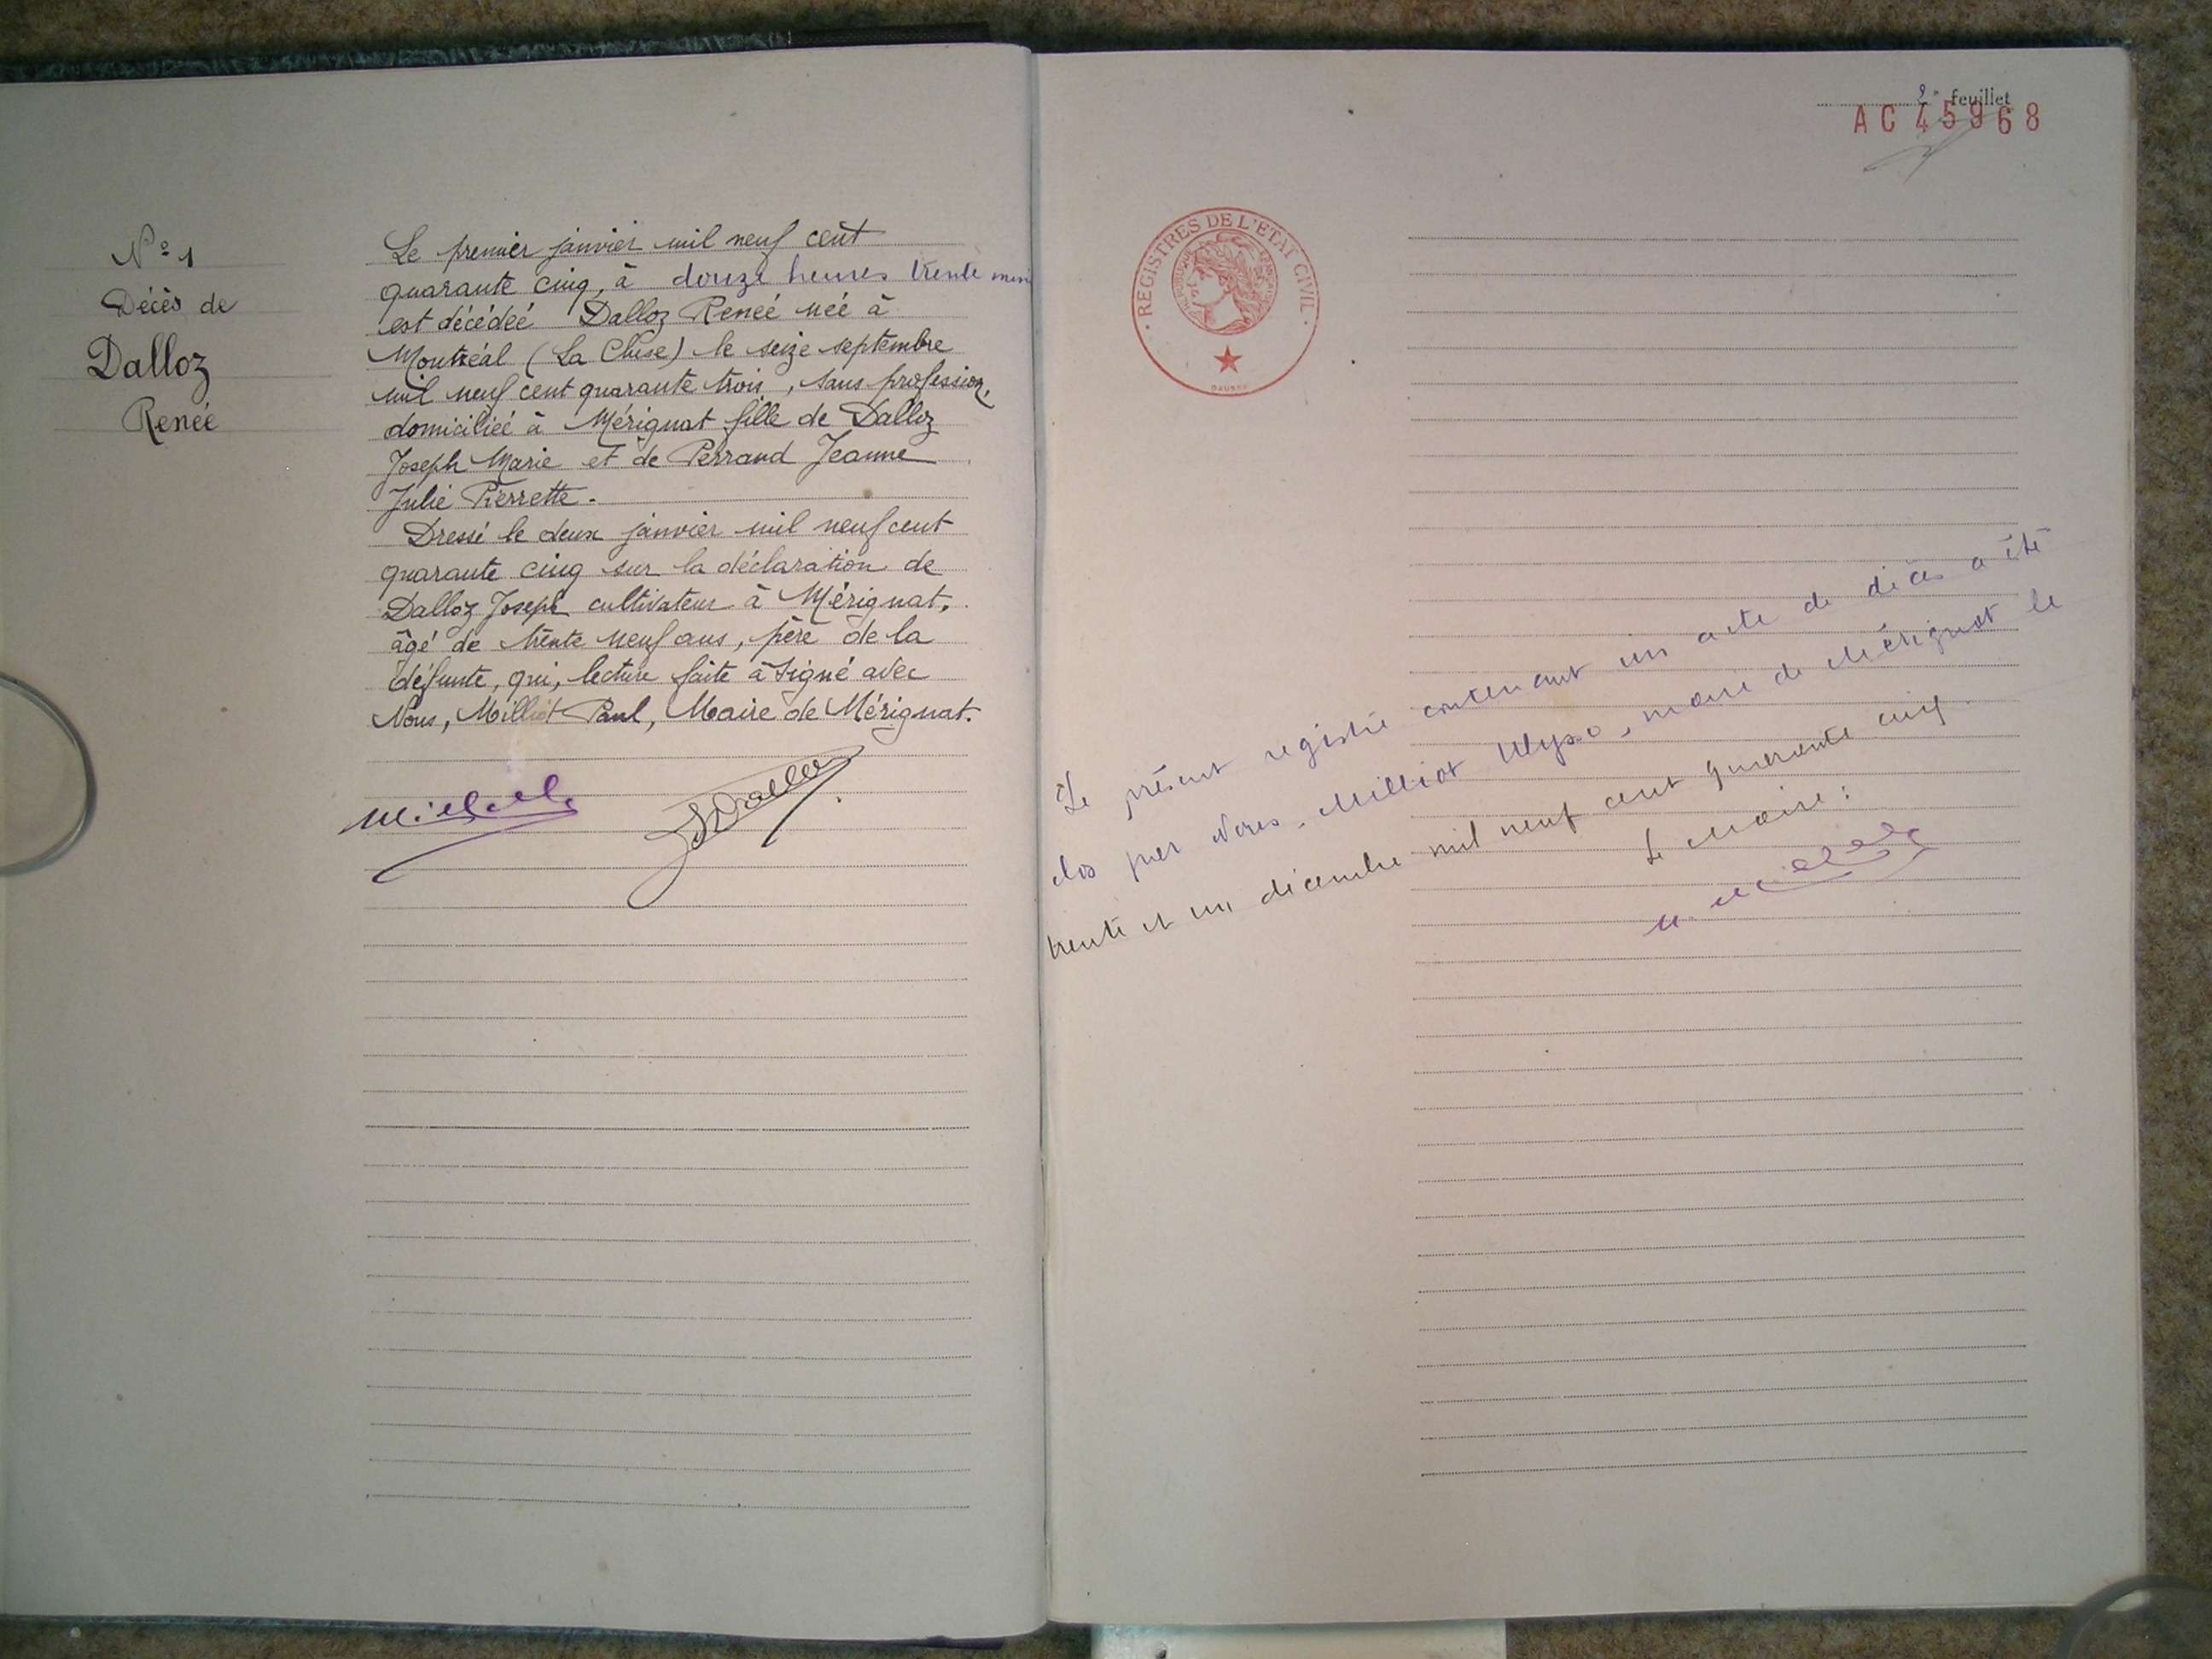 N° 1
Décès de
Dalloz
Renée
Le premier janvier mil neuf cent
quarante cinq, à douze heures trente min
est décédée Dalloz Renée née à
Montréal (La Cluse) le seize septembre
mil neuf cent quarante trois, sans profession,
domiciliée à Mérignat fille de Dalloz
Joseph Marie et de Perrand Jeanne
Julie Pierrette.
Dressé le deux janvier mil neuf cent
quarante cinq sur la déclaration de
Dalloz Joseph cultivateur à Mérignat,
âgé de trente neuf ans, père de la
défunte, qui, lecture faite a signé avec
Nous, Milliot Paul, Maire de Mérignat.
JDalloz
2e feuillet
AC 45968
REGISTRES DE L'ETAT CIVIL
Le présent registre contenant un acte de décès a été
clos par Nous, Milliat, maire de Mérignat le
trente et un décembre mil neuf cent quarante cinq.
Le Maire :